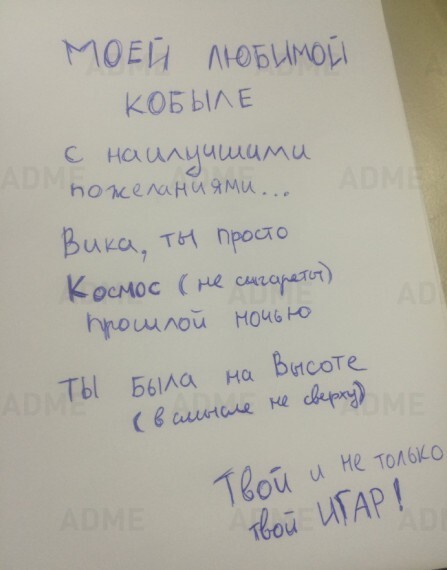 МОЕЙ ЛЮБИМОЙ
КОБЫЛЕ
с наилучшими
пожеланиями...
Вика, ты просто
Космос (не сигареты)
прошлой ночью
ты была на Высоте
(в смысле не сверху)
Твой и не только
твой ИГАР!
ADME
ADME
ADME
ADME
ADME
ADME
ADME
AD
ADME
ADME
AD
ADME
ADME